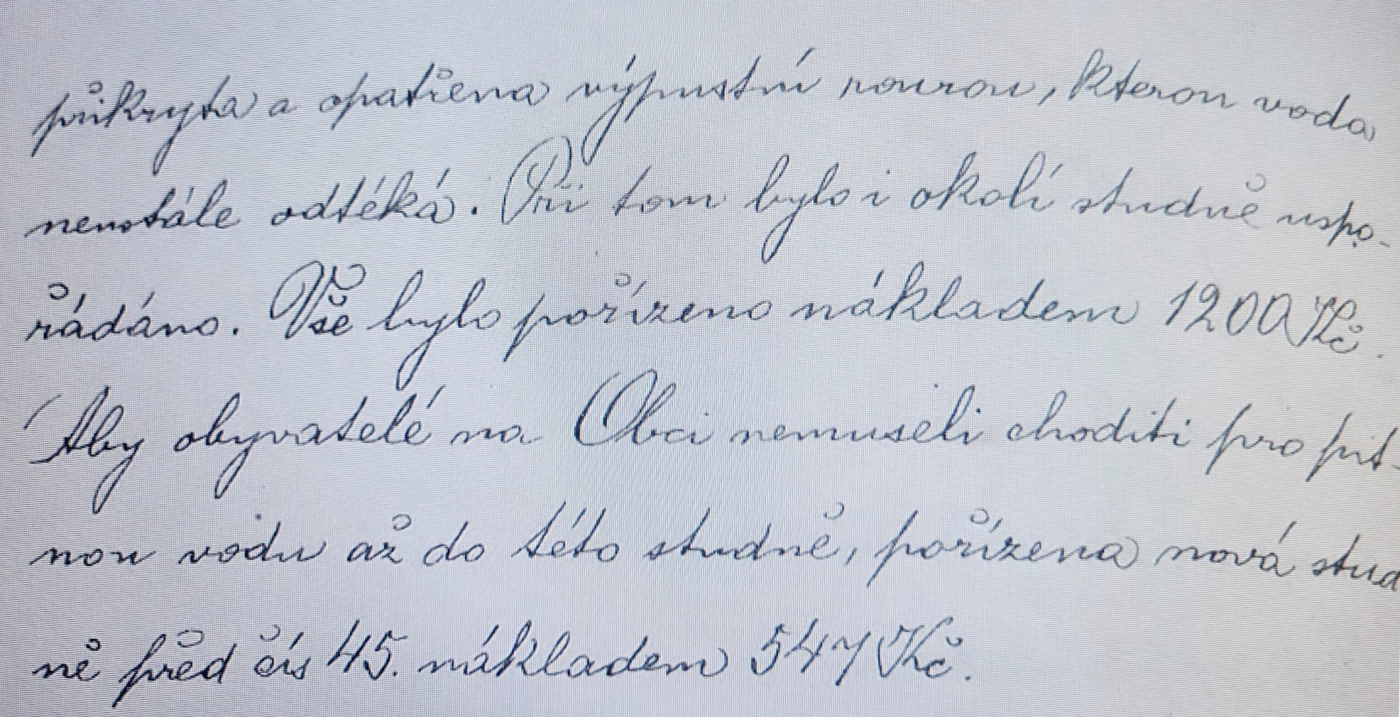 přikryta a opatřena výpustní rourou, kterou voda
neustále odtéká. Při tom bylo i okolí studně uspo-
řádáno. Vše bylo pořízeno nákladem 1200 Kč.
Aby obyvatelé na Obci nemuseli choditi pro pit-
nou vodu až do této studně, pořízena nová stud
ně před čís 45. nákladem 547 Kč.